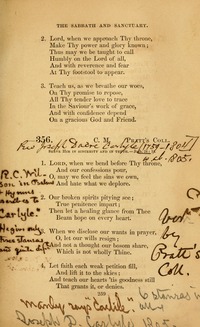 THE SABBATH AND SANCTUARY.
2. Lord, when we approach Thy throne,
Make Thy power and glory known;
Thus may we be taught to call
Humbly on the Lord of all,
And with reverence and fear
At Thy footstool to appear.
3. Teach us, as we breathe our woes,
On Thy promise to repose,
All Thy tender love to trace
In the Saviour's work of grace,
And with confidence depend
On a gracious God and Friend.
356. C. M. PRATT'S COLL.
Rev Joseph Dacre Carlyle
1. LORD, when we bend before Thy throne,
And our confessions pour,
O, may we feel the sins we own,
And hate what we deplore.
2. Our broken spirits pitying see;
True penitence impart;
Then let a healing glance from Thee
Beam hope on every heart.
3. When we disclose our wants in prayer,
O, let our wills resign;
And not a thought our bosom share,
Which is not wholly Thine.
4. Let faith each weak petition fill,
And lift it to the skies;
And teach our hearts 'tis goodness still
That grants it, or denies.
359
R.C. Wil-
son in
Hymns
Carlyle"
by
Pratt's
Coll.
says "Carlyle".
6 stanzas in
Joseph D. Carlyle